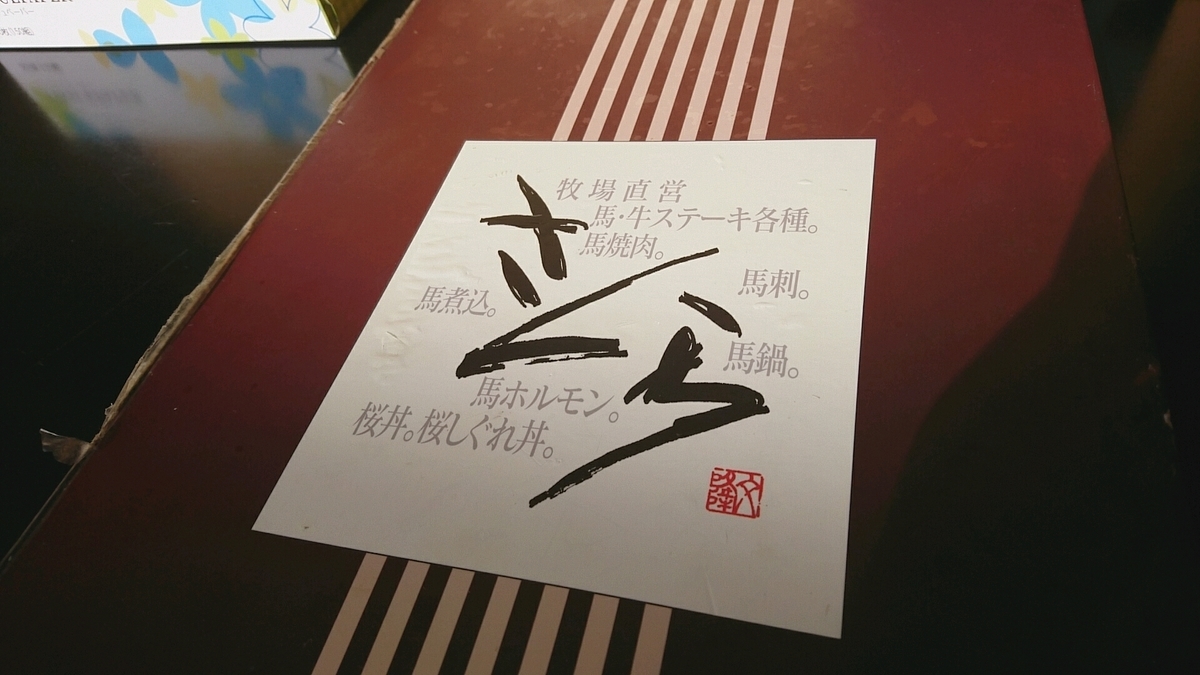 牧場直営
馬・牛ステーキ各種。
馬焼肉。
馬刺。
馬煮込。
馬鍋。
馬ホルモン。
桜丼。桜しぐれ丼。